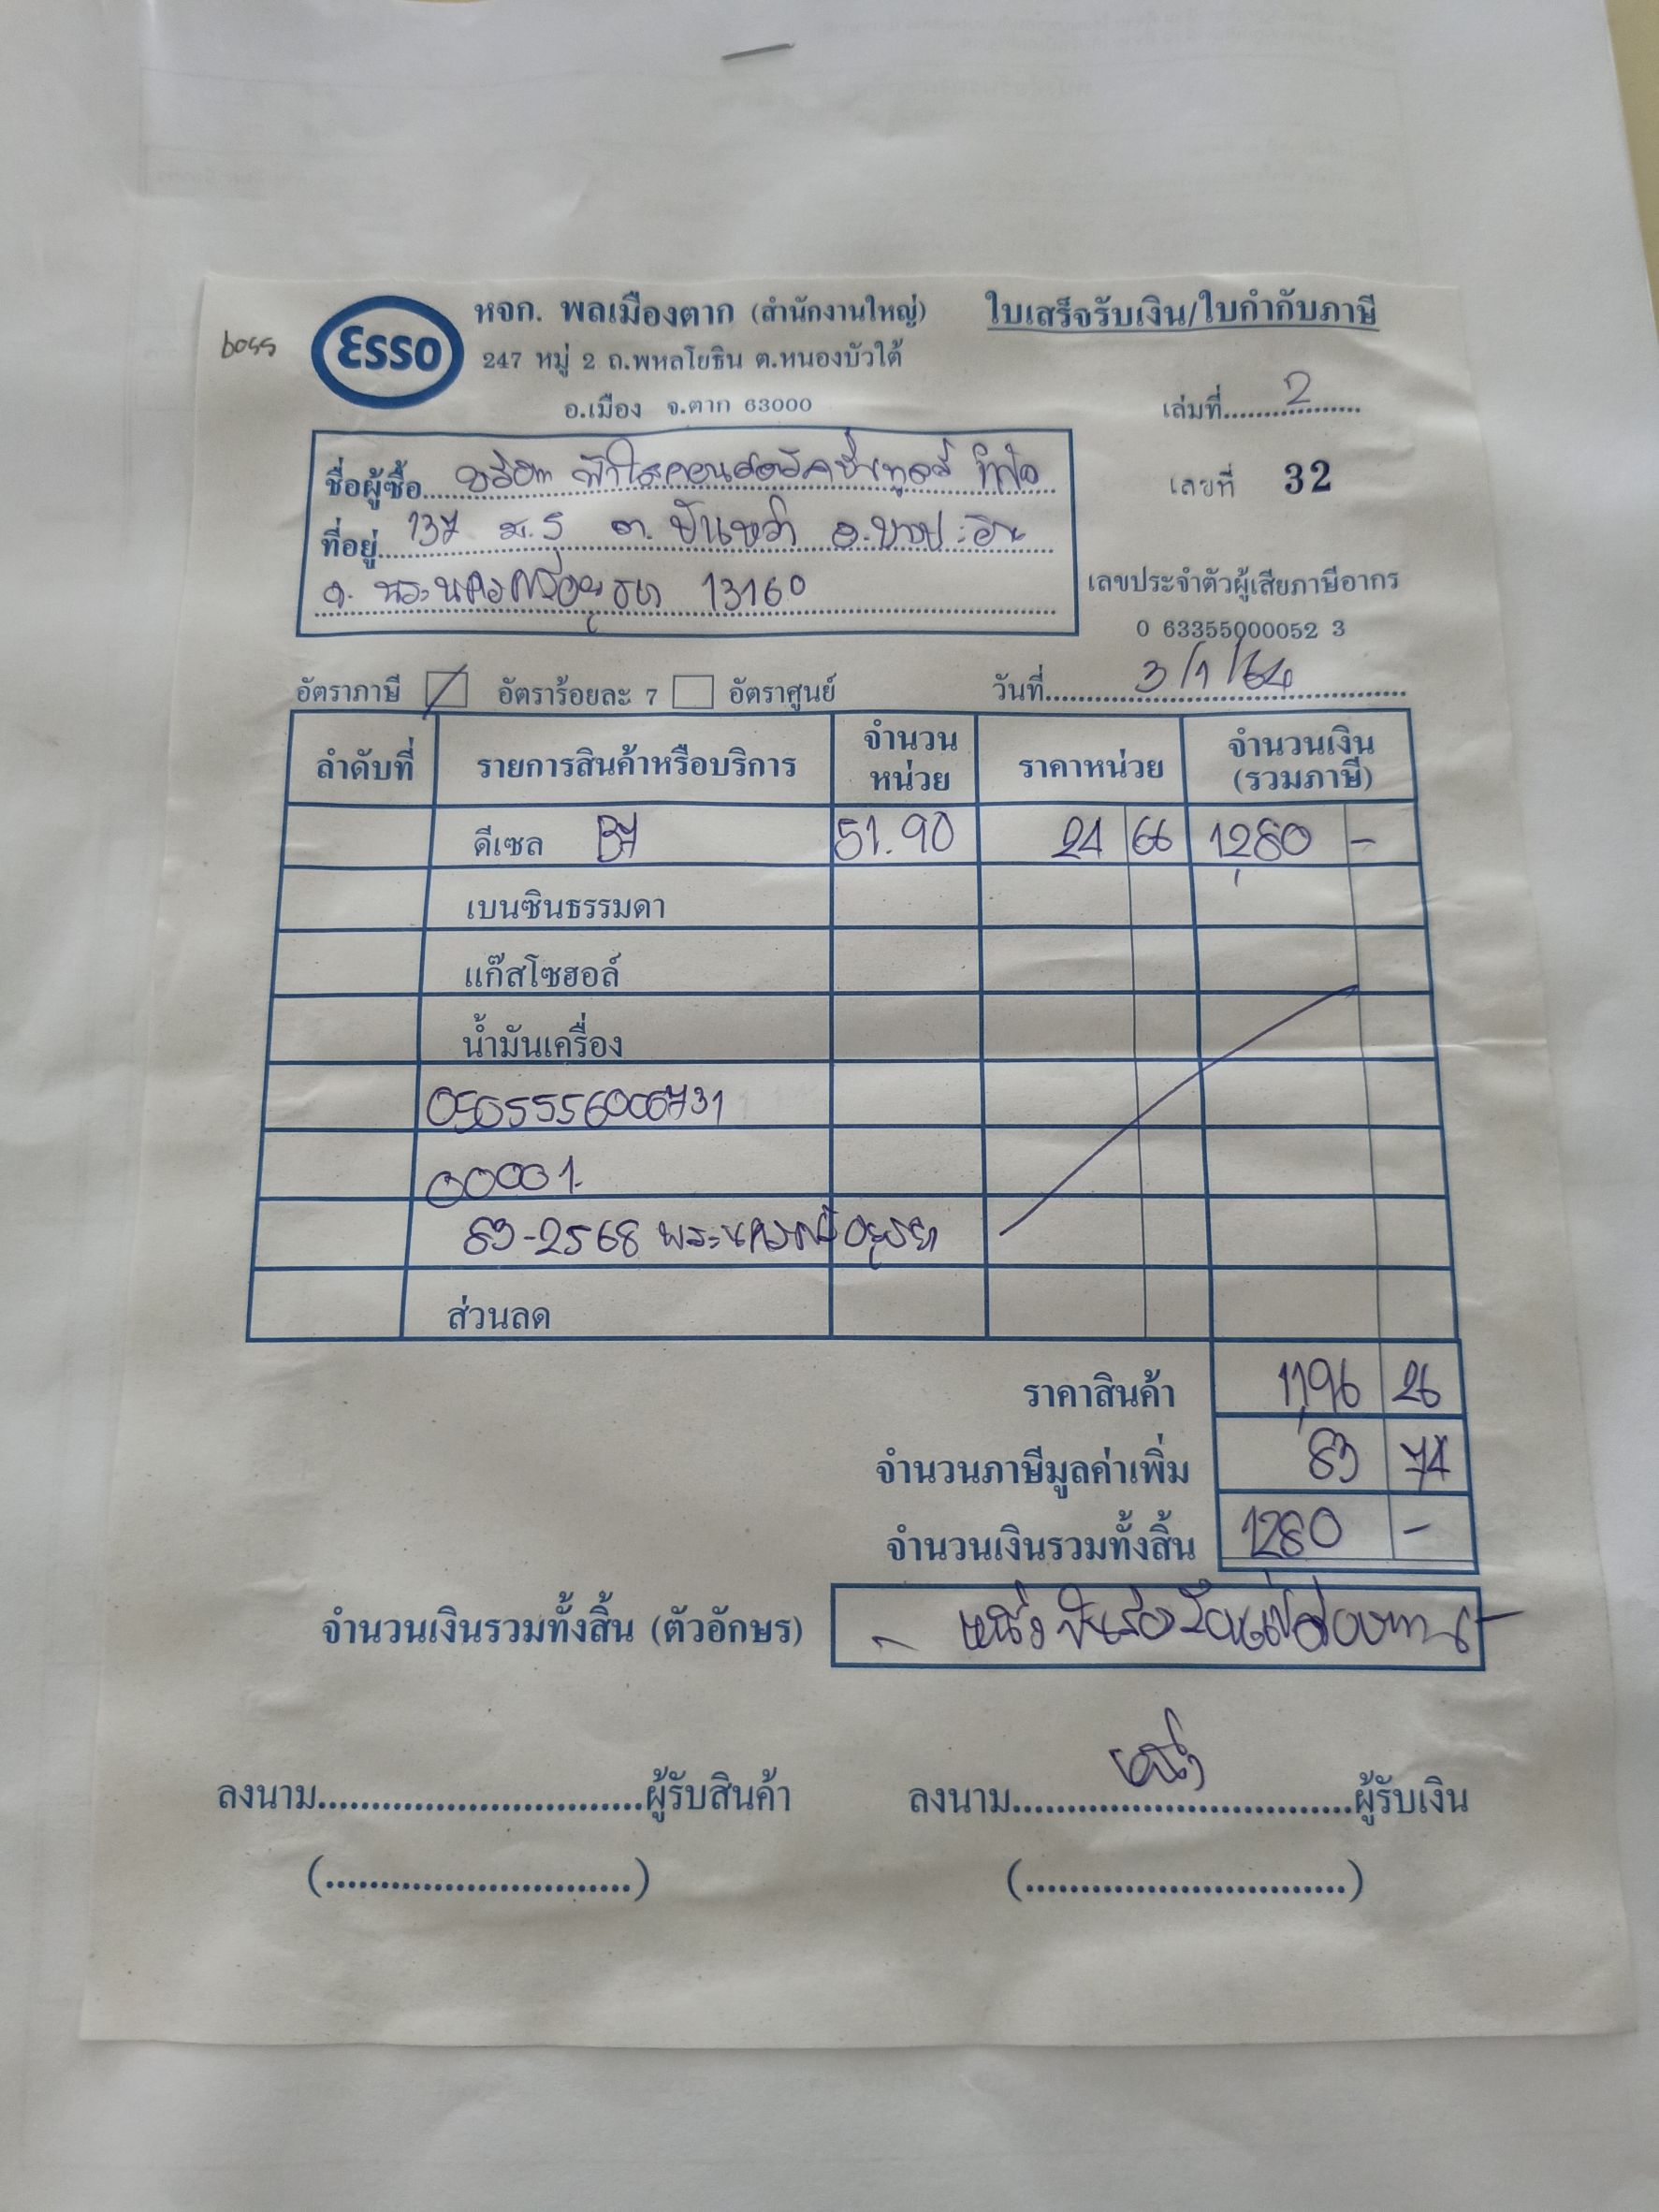 boss
Esso
หจก. พลเมืองตาก (สำนักงานใหญ่)
ใบเสร็จรับเงิน/ใบกำกับภาษี
247 หมู่ 2 ถ.พหลโยธิน ต.หนองบัวใต้
อ.เมือง จ.ตาก 63000
เล่มที่ 2
เลขที่ 32
ชื่อผู้ซื้อ บริษัท
ที่อยู่ 137 ม.5 ต. บ้านหว้า อ.บางปะอิน
จ. พระนครศรีอยุธยา 13160
เลขประจำตัวผู้เสียภาษีอากร
0 63355000052 3
อัตราภาษี อัตราร้อยละ 7 อัตราศูนย์
วันที่ 3/1/64
ลำดับที่ รายการสินค้าหรือบริการ จำนวนหน่วย ราคาหน่วย จำนวนเงิน (รวมภาษี)
ดีเซล B7 51.90 24 66 1,280 -
เบนซินธรรมดา
แก๊สโซฮอล์
น้ำมันเครื่อง
0505556006731
00001
83-2568 พระนครศรีอยุธยา
ส่วนลด
ราคาสินค้า 1,196 26
จำนวนภาษีมูลค่าเพิ่ม 83 74
จำนวนเงินรวมทั้งสิ้น 1,280 -
จำนวนเงินรวมทั้งสิ้น (ตัวอักษร) - หนึ่งพันสองร้อยแปดสิบบาท -
ลงนาม ผู้รับสินค้า
ลงนาม ผู้รับเงิน